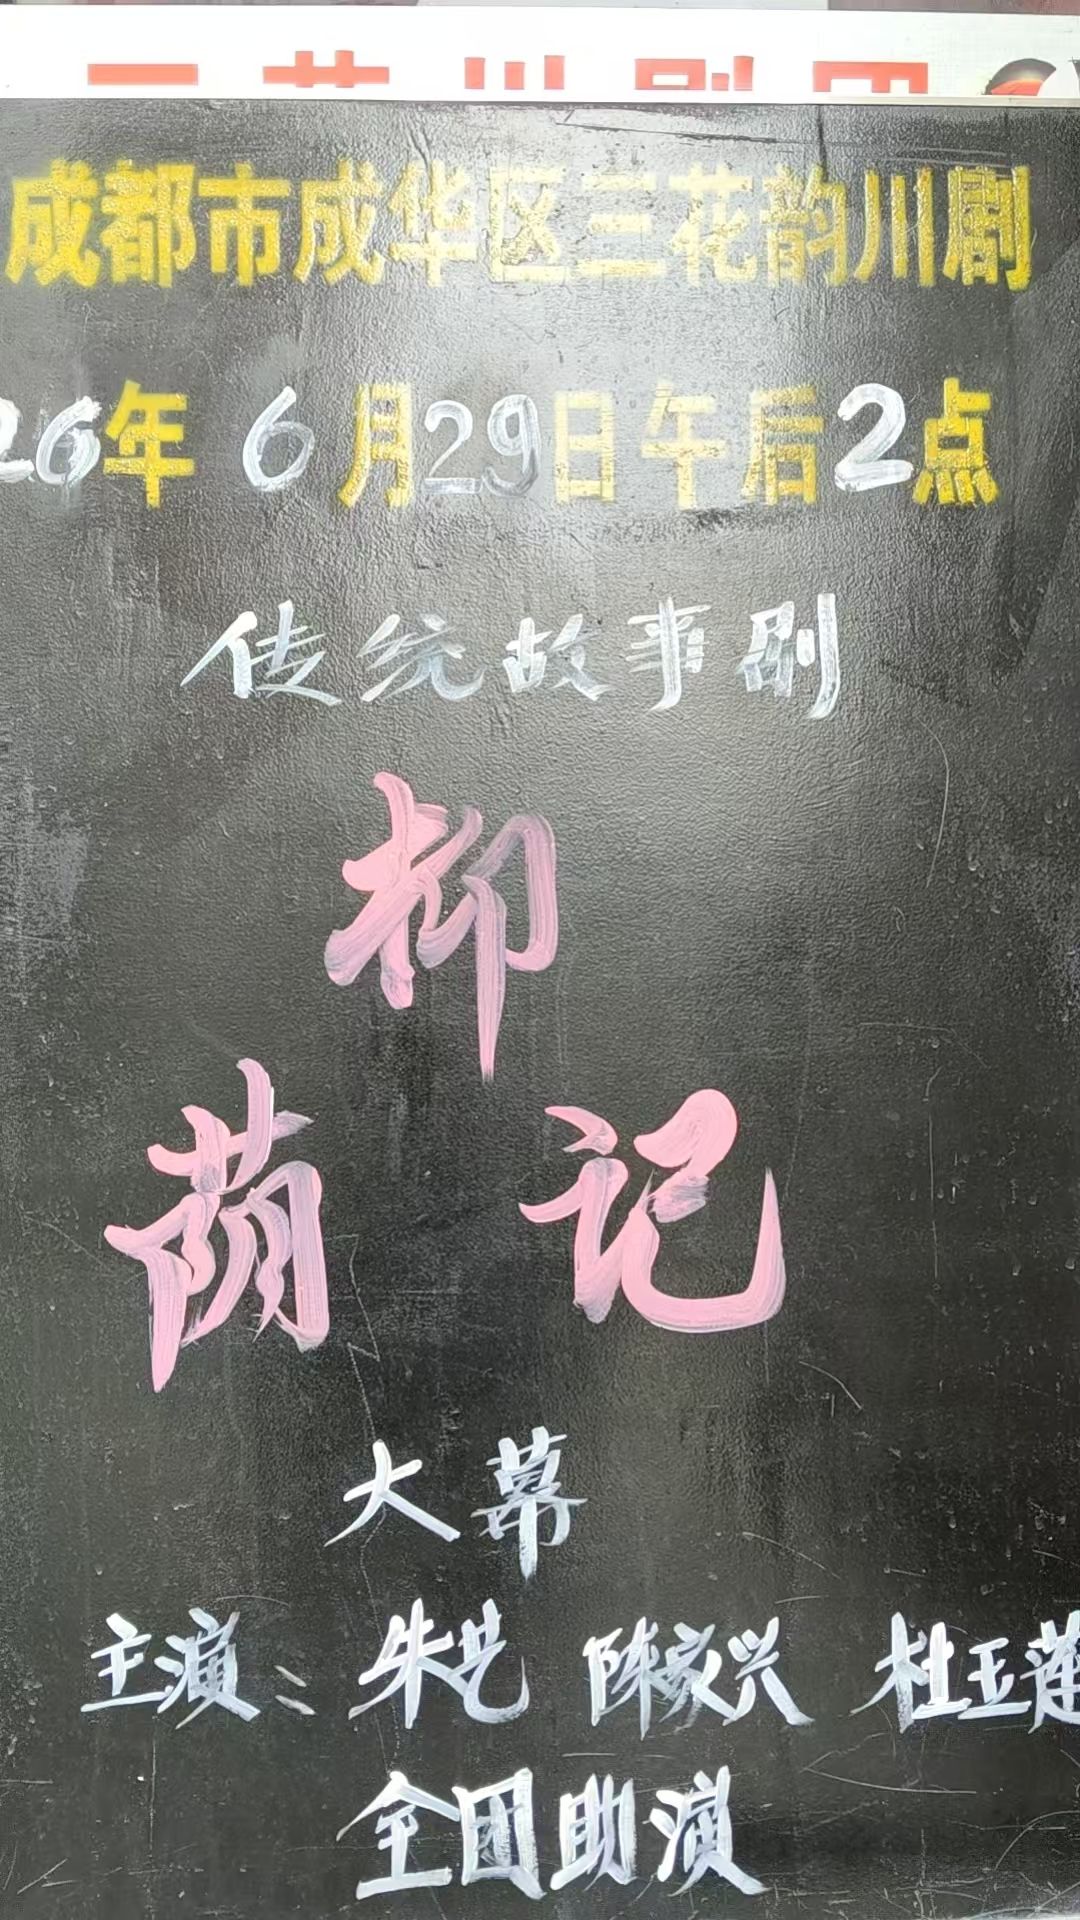 成都市成华区三花韵川剧
26年6月29日午后2点
传统故事剧
柳
荫记
大幕
主演：朱艺 陈家兴 杜玉莲
全团助演